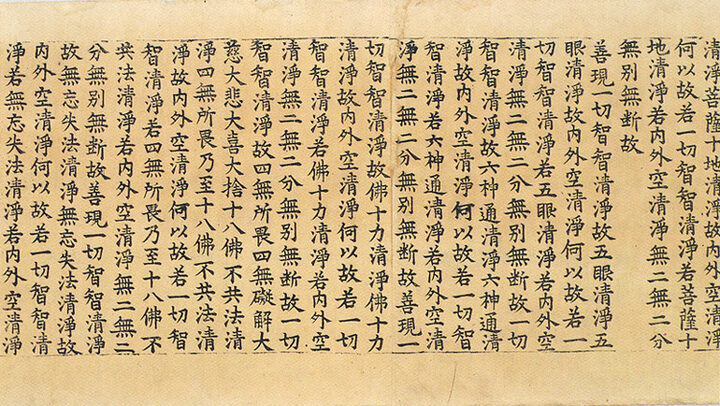 清淨菩薩十地清淨故内外空清淨
何以故若一切智智清淨若菩薩十
地清淨若内外空清淨無二無二分
無別無斷故
善現一切智智清淨故五眼清淨五
眼清淨故内外空清淨何以故若一
切智智清淨若五眼清淨若内外空
清淨無二無二分無別無斷故一切
智智清淨故六神通清淨六神通清
淨故内外空清淨何以故若一切智
智清淨若六神通清淨若内外空清
淨無二無二分無別無斷故善現一
切智智清淨故佛十力清淨佛十力
清淨故内外空清淨何以故若一切
智智清淨若佛十力清淨若内外空
清淨無二無二分無別無斷故一切
智智清淨故四無所畏四無礙解大
慈大悲大喜大捨十八佛不共法清
淨四無所畏乃至十八佛不共法清
淨故内外空清淨何以故若一切智
智清淨若四無所畏乃至十八佛不
共法清淨若内外空清淨無二無二
分無別無斷故善現一切智智清淨
故無忘失法清淨無忘失法清淨故
内外空清淨何以故若一切智智清
淨若無忘失法清淨若内外空清淨